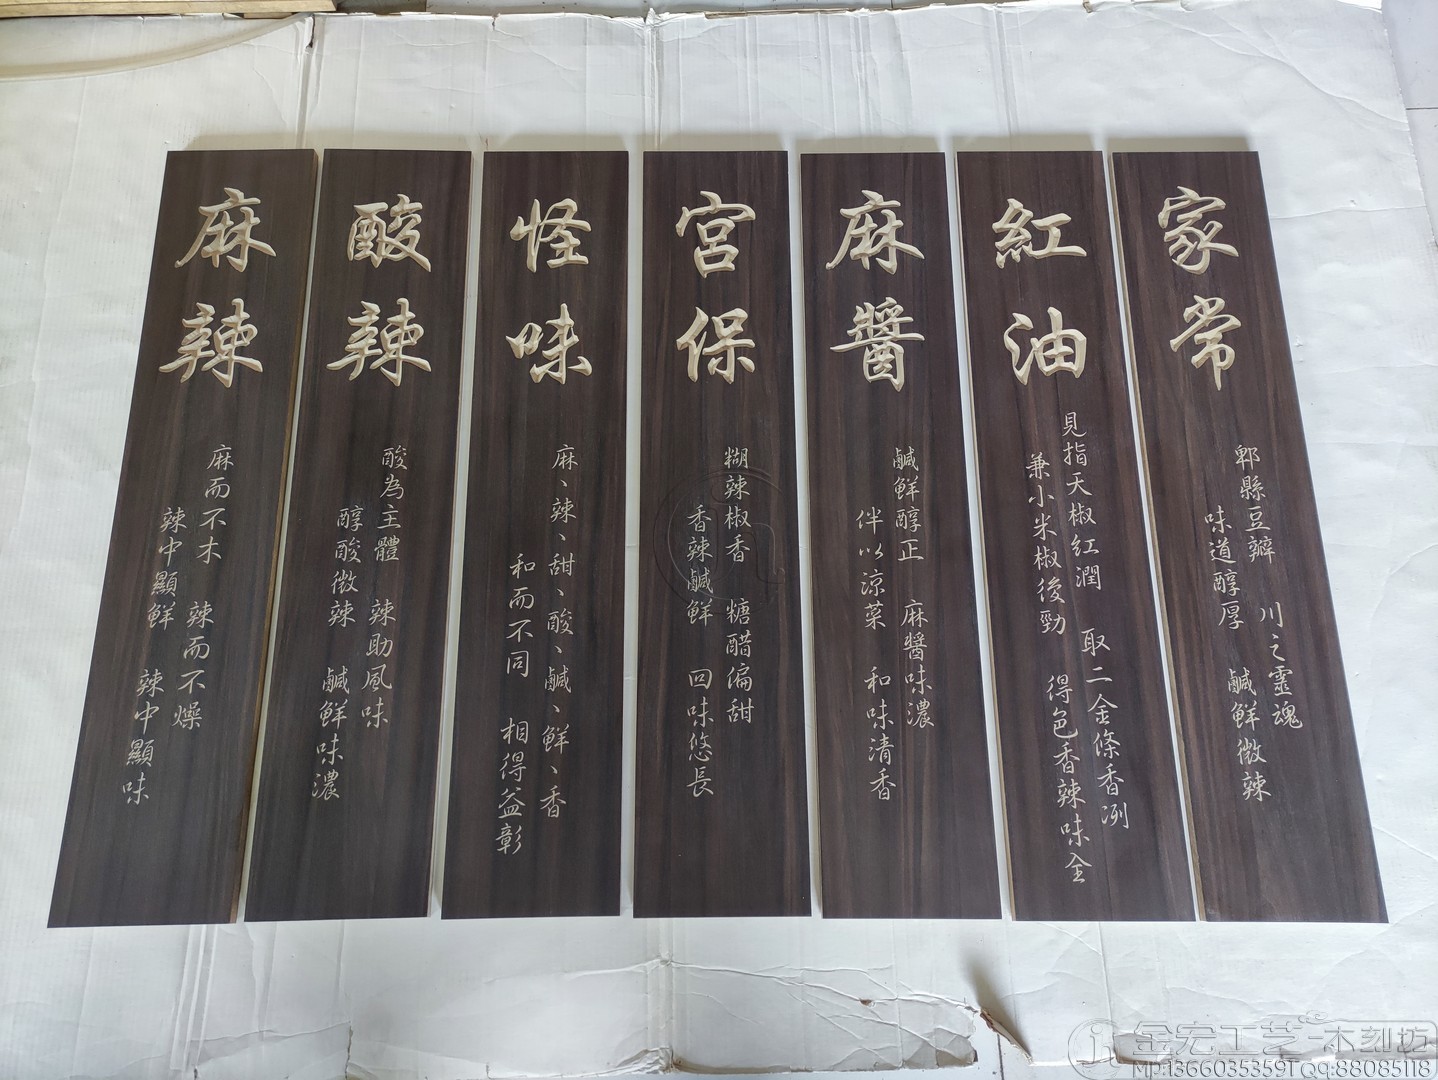 家常
郫縣豆瓣 川之靈魂
味道醇厚 鹹鮮微辣
紅油
見指天椒紅潤 取二金條香冽
兼小米椒後勁 得色香辣味全
麻醬
鹹鮮醇正 麻醬味濃
伴以涼菜 和味清香
宮保
糊辣椒香 糖醋偏甜
香辣鹹鮮 回味悠長
怪味
麻、辣、甜、酸、鹹、鮮、香
和而不同 相得益彰
酸辣
酸為主體 辣助風味
醇酸微辣 鹹鮮味濃
麻辣
麻而不木 辣而不燥
辣中顯鮮 辣中顯味
金宏工艺-木刻坊
Mp:1366035359TQq:88085118